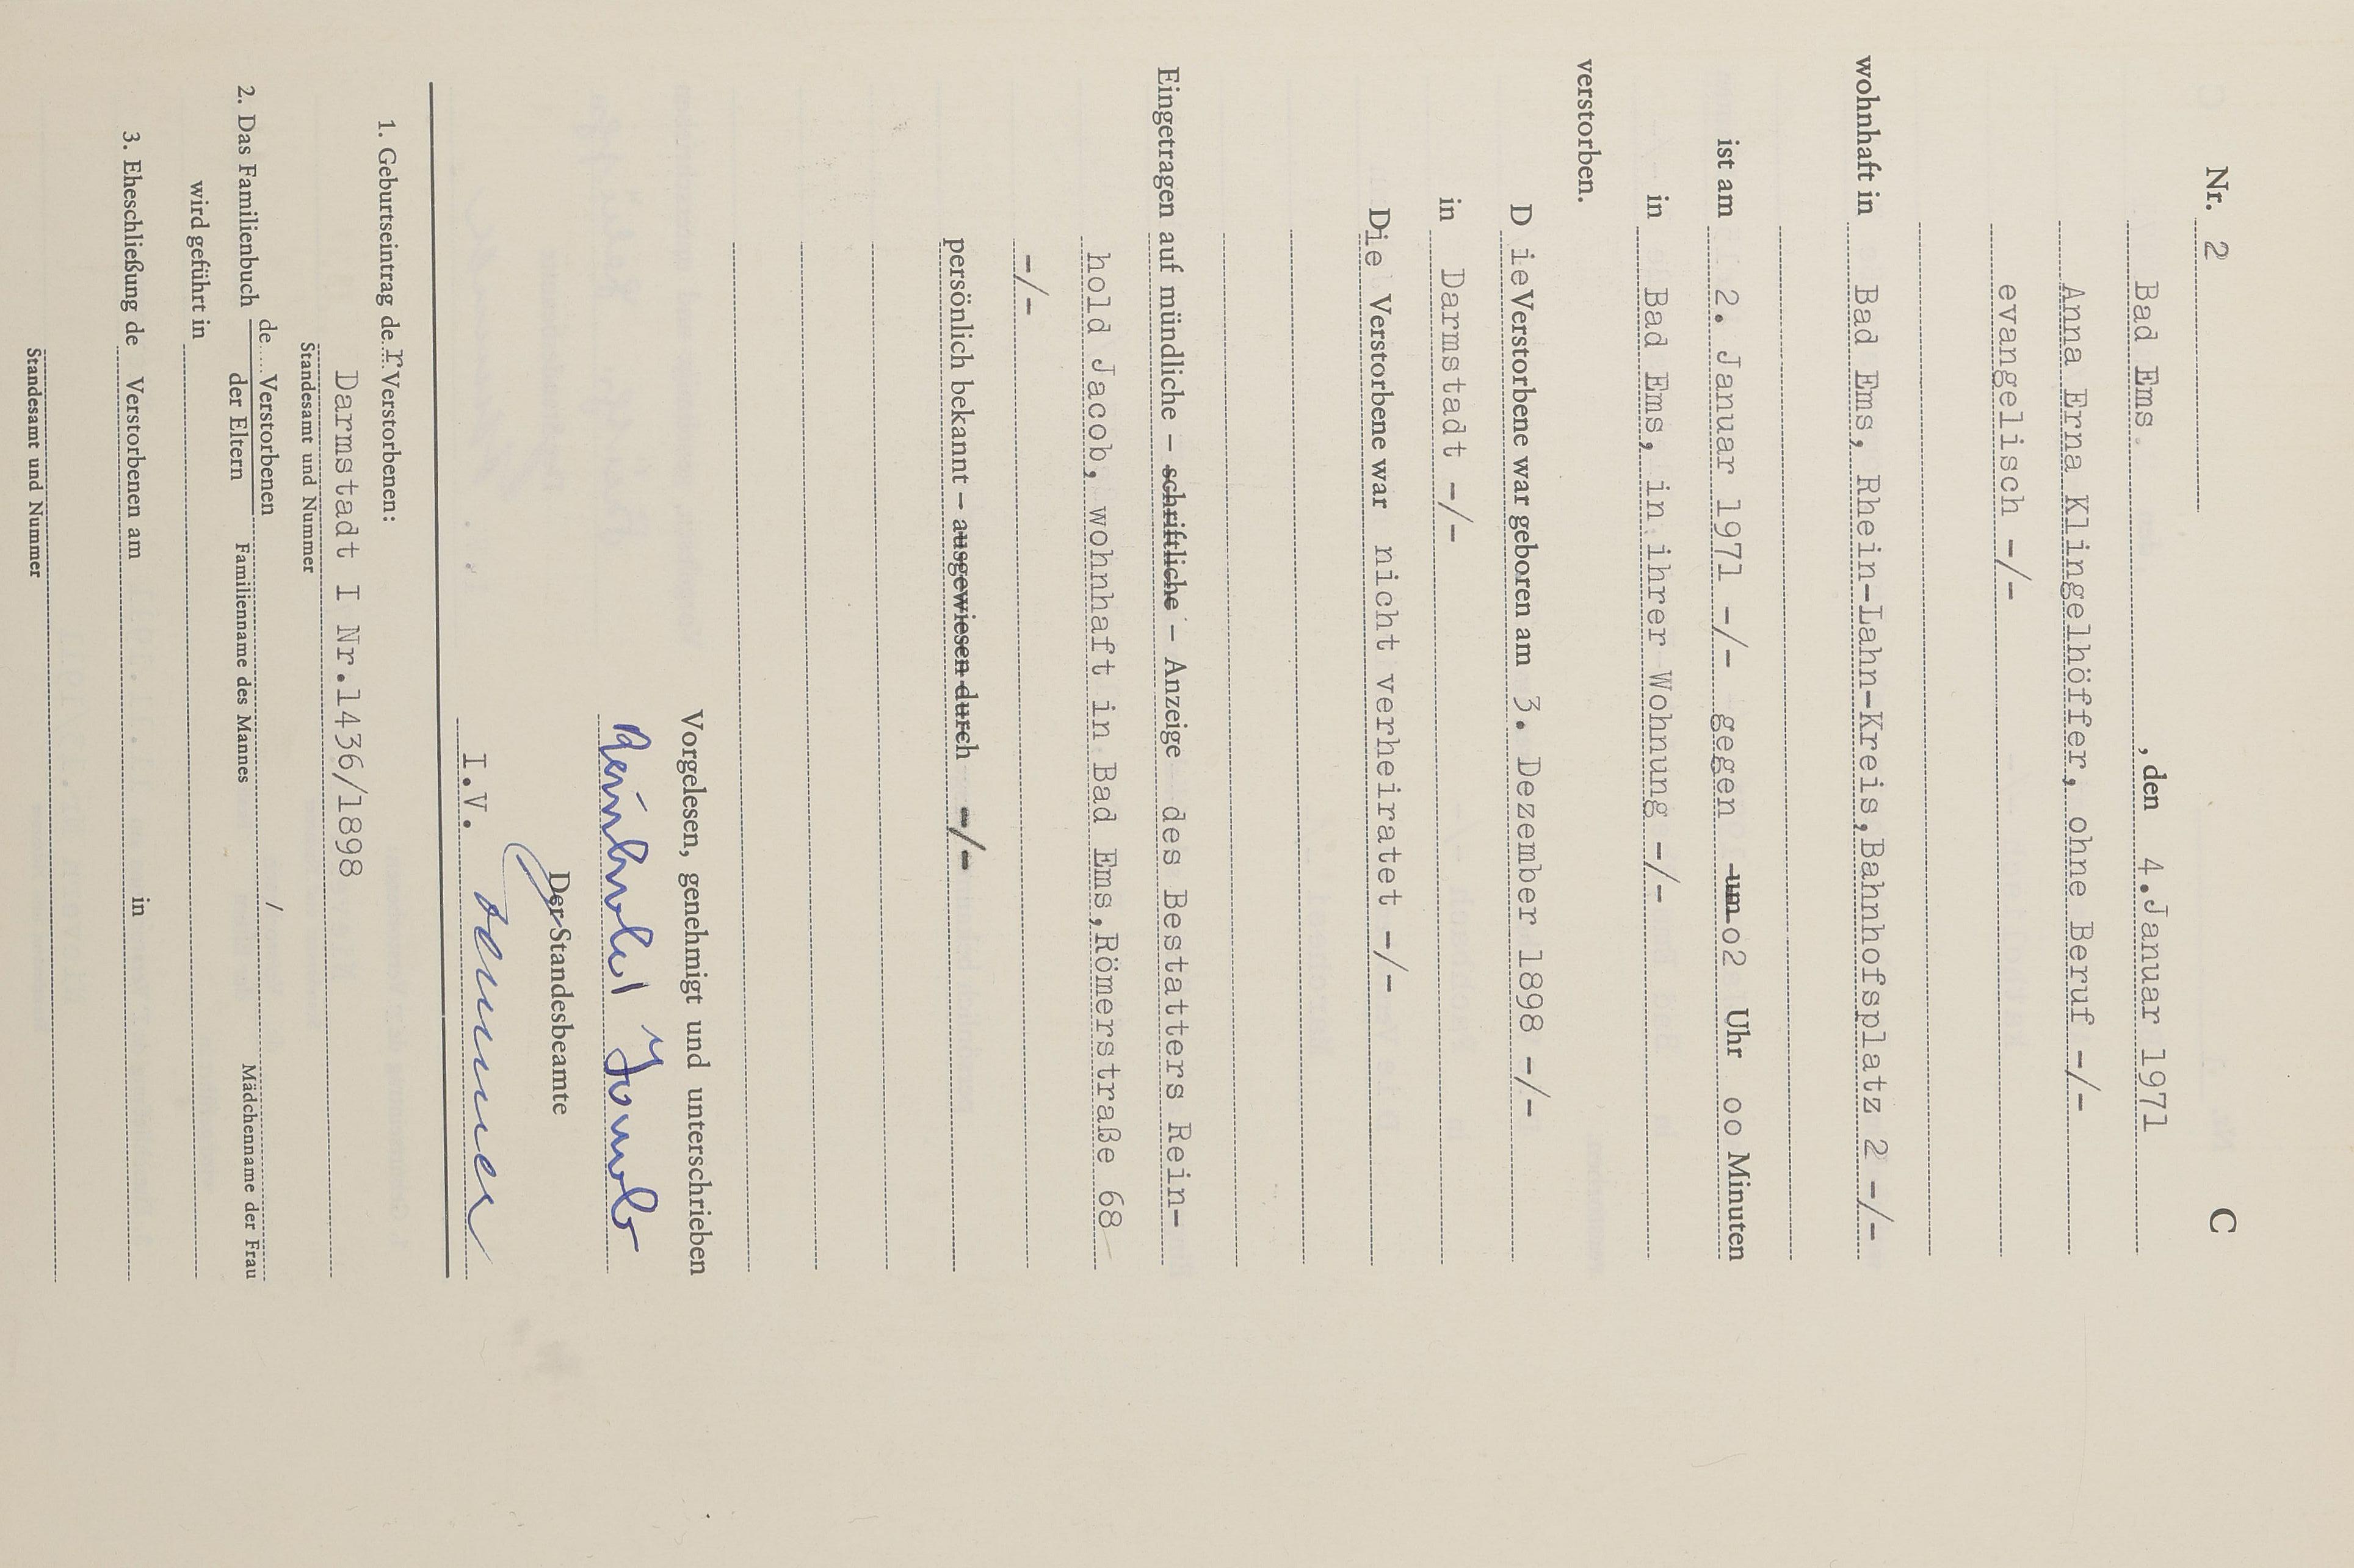 Nr. 2 C
Bad Ems , den 4.Januar 1971
Anna Erna Klingelhöffer, ohne Beruf -/-
evangelisch -/-
wohnhaft in Bad Ems, Rhein-Lahn-Kreis,Bahnhofsplatz 2 -/-
ist am 2. Januar 1971 -/- gegen um o2 Uhr oo Minuten
in Bad Ems, in ihrer Wohnung -/-
verstorben.
D ieVerstorbene war geboren am 3. Dezember 1898 -/-
in Darmstadt -/-
Die Verstorbene war nicht verheiratet -/-
Eingetragen auf mündliche – schriftliche – Anzeige des Bestatters Rein-
hold Jacob, wohnhaft in Bad Ems,Römerstraße 68
-/-
persönlich bekannt – ausgewiesen durch -/-
Vorgelesen, genehmigt und unterschrieben
Reinhold Jacob
Der Standesbeamte
I.V.
1. Geburtseintrag de r Verstorbenen:
Darmstadt I Nr.1436/1898
Standesamt und Nummer
2. Das Familienbuch de Verstorbenen /
der Eltern Familienname des Mannes Mädchenname der Frau
wird geführt in
3. Eheschließung de Verstorbenen am in
Standesamt und Nummer